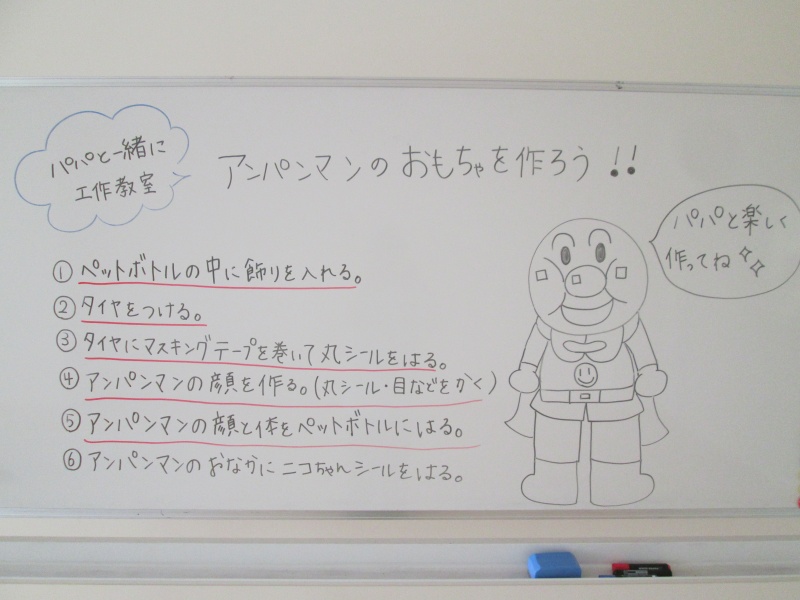 パパと一緒に
工作教室
アンパンマンのおもちゃを作ろう!!
パパと楽しく
作ってね
①ペットボトルの中に飾りを入れる。
②タイヤをつける。
③タイヤにマスキングテープを巻いて丸シールをはる。
④アンパンマンの顔を作る。(丸シール・目などをかく)
⑤アンパンマンの顔と体をペットボトルにはる。
⑥アンパンマンのおなかにニコちゃんシールをはる。